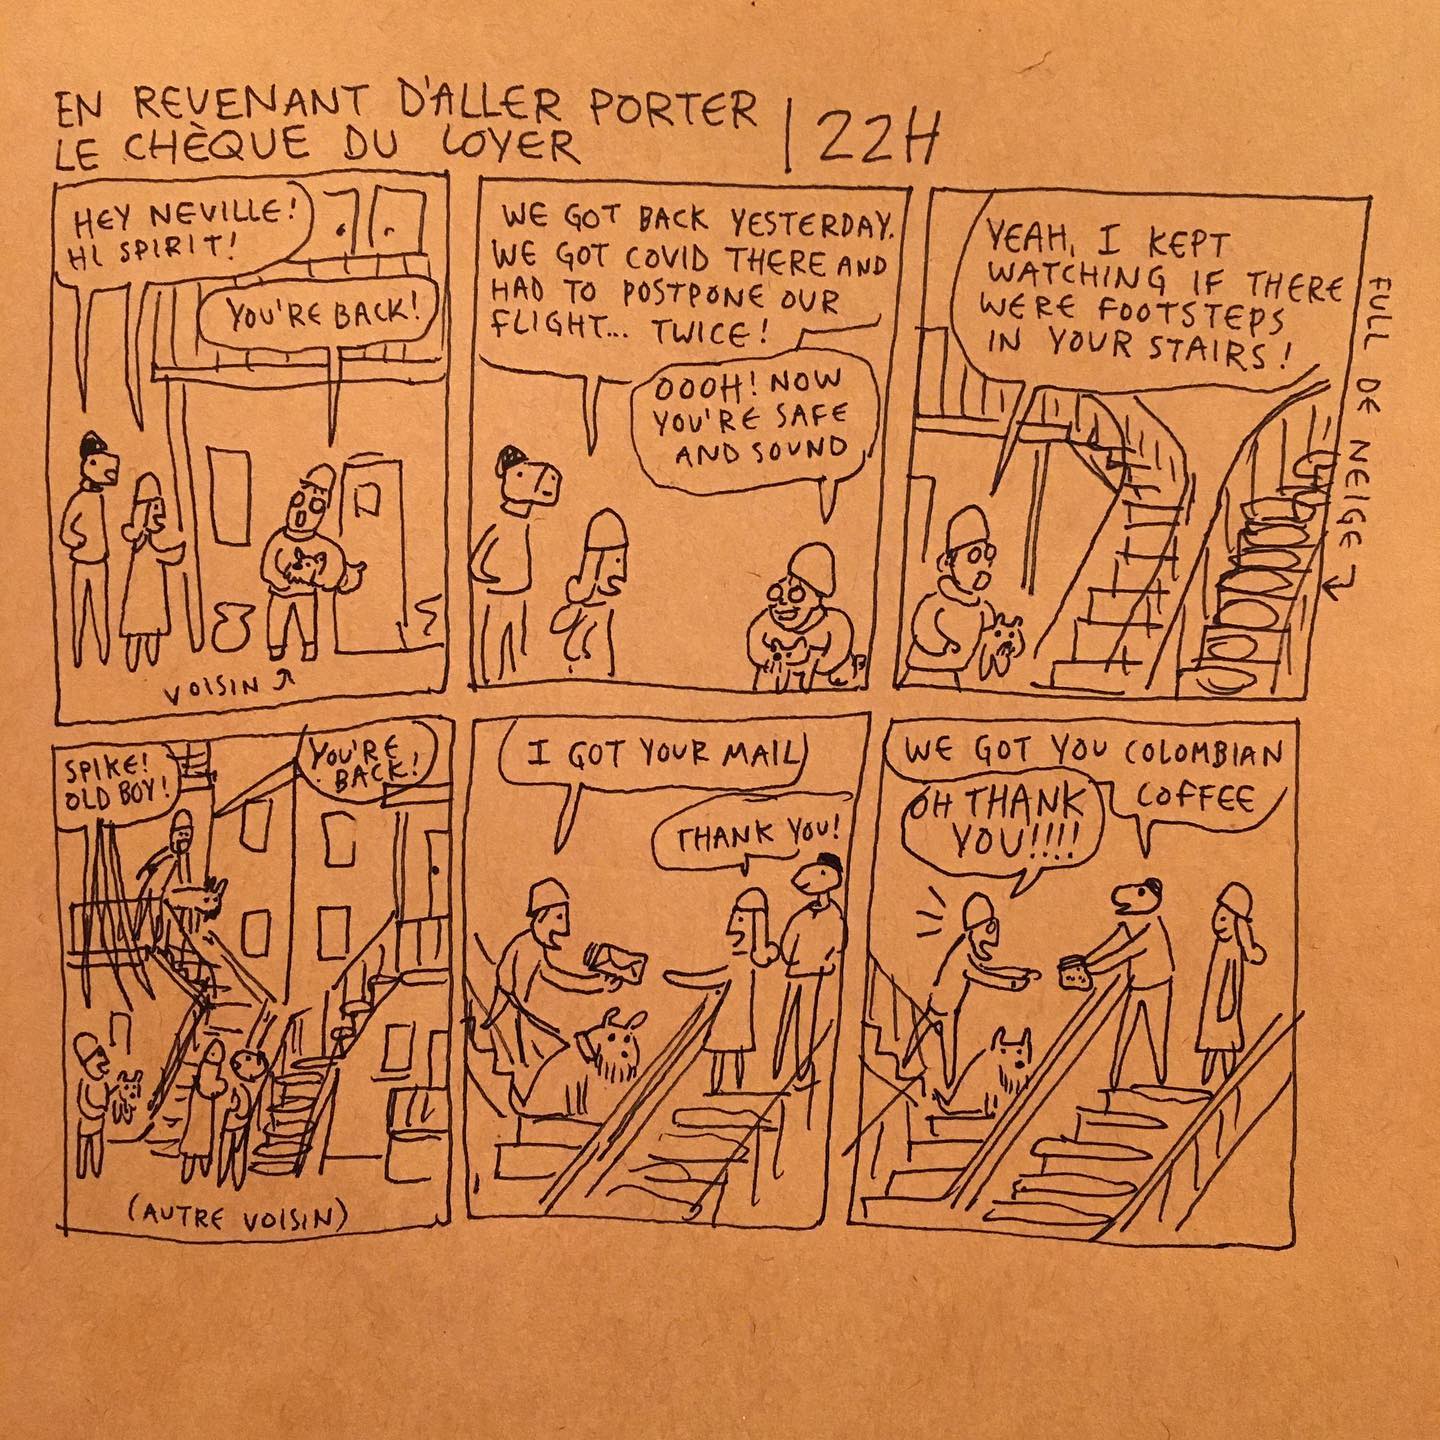 EN REVENANT D'ALLER PORTER
LE CHÈQUE DU LOYER
22H
HEY NEVILLE!
HI SPIRIT!
YOU'RE BACK!
VOISIN
WE GOT BACK YESTERDAY.
WE GOT COVID THERE AND
HAD TO POSTPONE OUR
FLIGHT... TWICE!
OOOH! NOW
YOU'RE SAFE
AND SOUND
YEAH, I KEPT
WATCHING IF THERE
WERE FOOTSTEPS
IN YOUR STAIRS!
FULL DE NEIGE
SPIKE!
OLD BOY!
YOU'RE
BACK!
(AUTRE VOISIN)
I GOT YOUR MAIL
THANK YOU!
WE GOT YOU COLOMBIAN
COFFEE
OH THANK
YOU!!!!